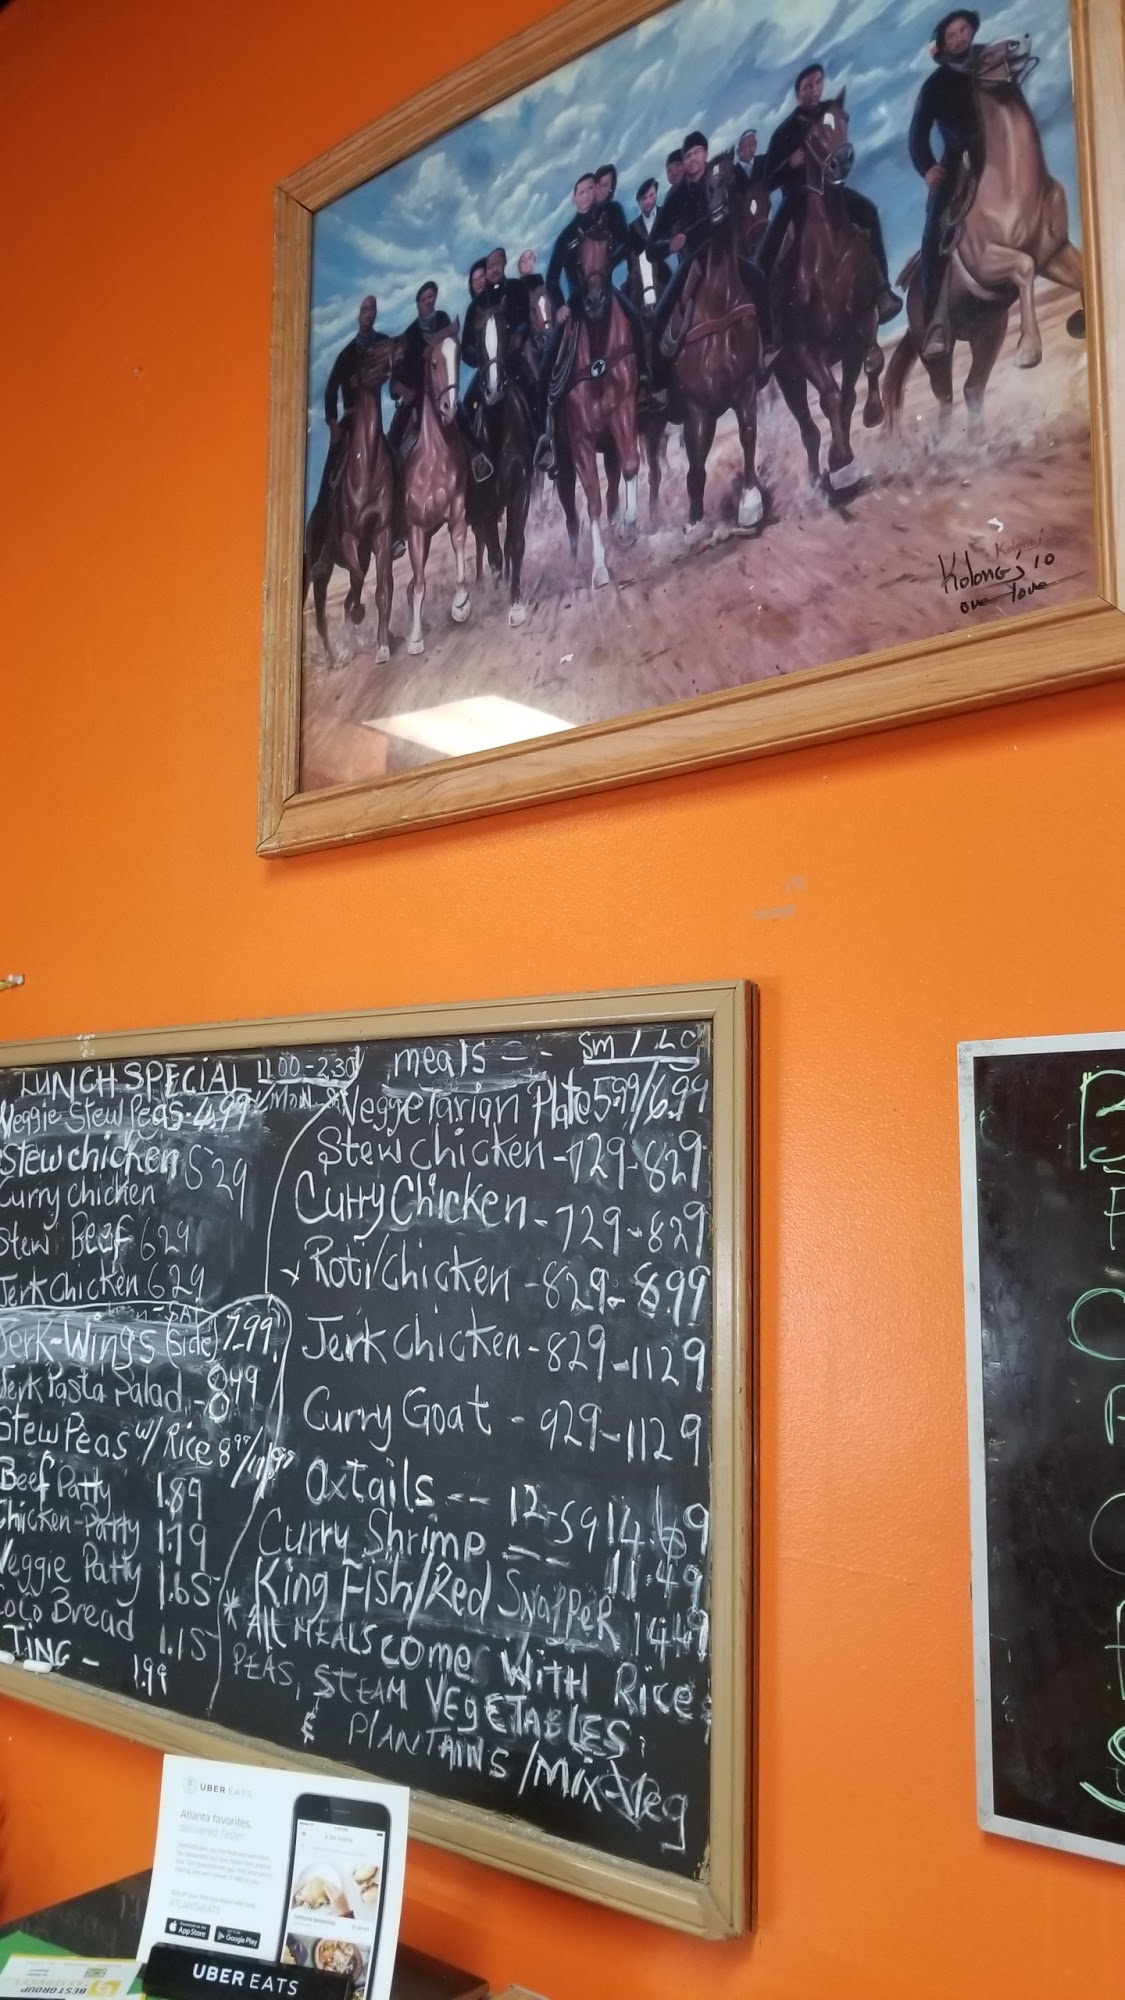 Kolongi 10
one love
LUNCH SPECIAL 11.00-2.30
Veggie Stew Peas - 4.99
Stew chicken 529
Curry chicken
Stew Beef 629
Jerk Chicken 629
Jerk-Wings (side) 7.99
Jerk Pasta Salad - 899
Stew Peas w/ Rice 8
Beef Patty 1.89
Chicken-Patty 1.79
Veggie Patty 1.65
Coco Bread 1.15
TING - 1.99
meals -- SM / LG
Veggetarian Plate 599/6.99
Stew Chicken - 729-829
Curry Chicken - 729-829
Roti/Chicken - 829-899
Jerk Chicken - 829-1129
Curry Goat - 929-1129
Oxtails -- 12-59 14.69
Curry Shrimp -- 11.49
King Fish/Red Snapper 1449
* All MEALS COME WITH Rice
PEAS, STEAM VEGETABLES,
& PLANTAINS/Mix-Veg
UBER EATS
Atlanta favorites,
delivered faster.
App Store
Google Play
UBER EATS
BEST GROUP